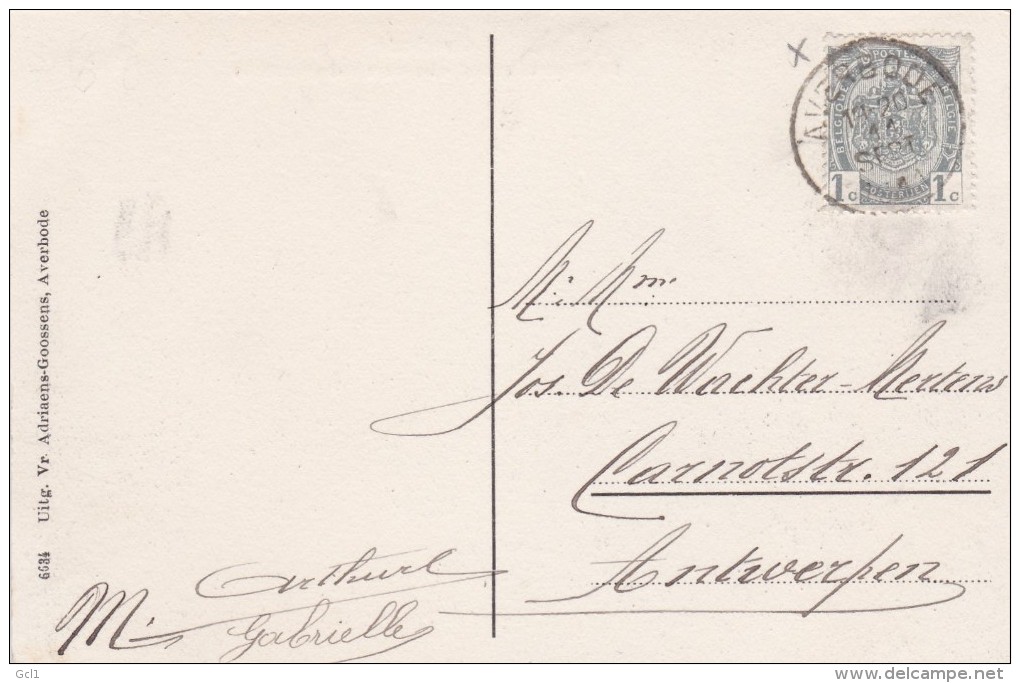 AVERBODE
SEPT
POSTES
BELGIQUE
BELGIË
1c 1c
POSTERIJEN
6634 Uitg. Vr Adriaens-Goossens, Averbode
M. Mme
Jos. De Wachter-Mertens
Carnotstr. 121
Antwerpen
M. Arthur
Gabrielle
Gcl1
delcampe.net